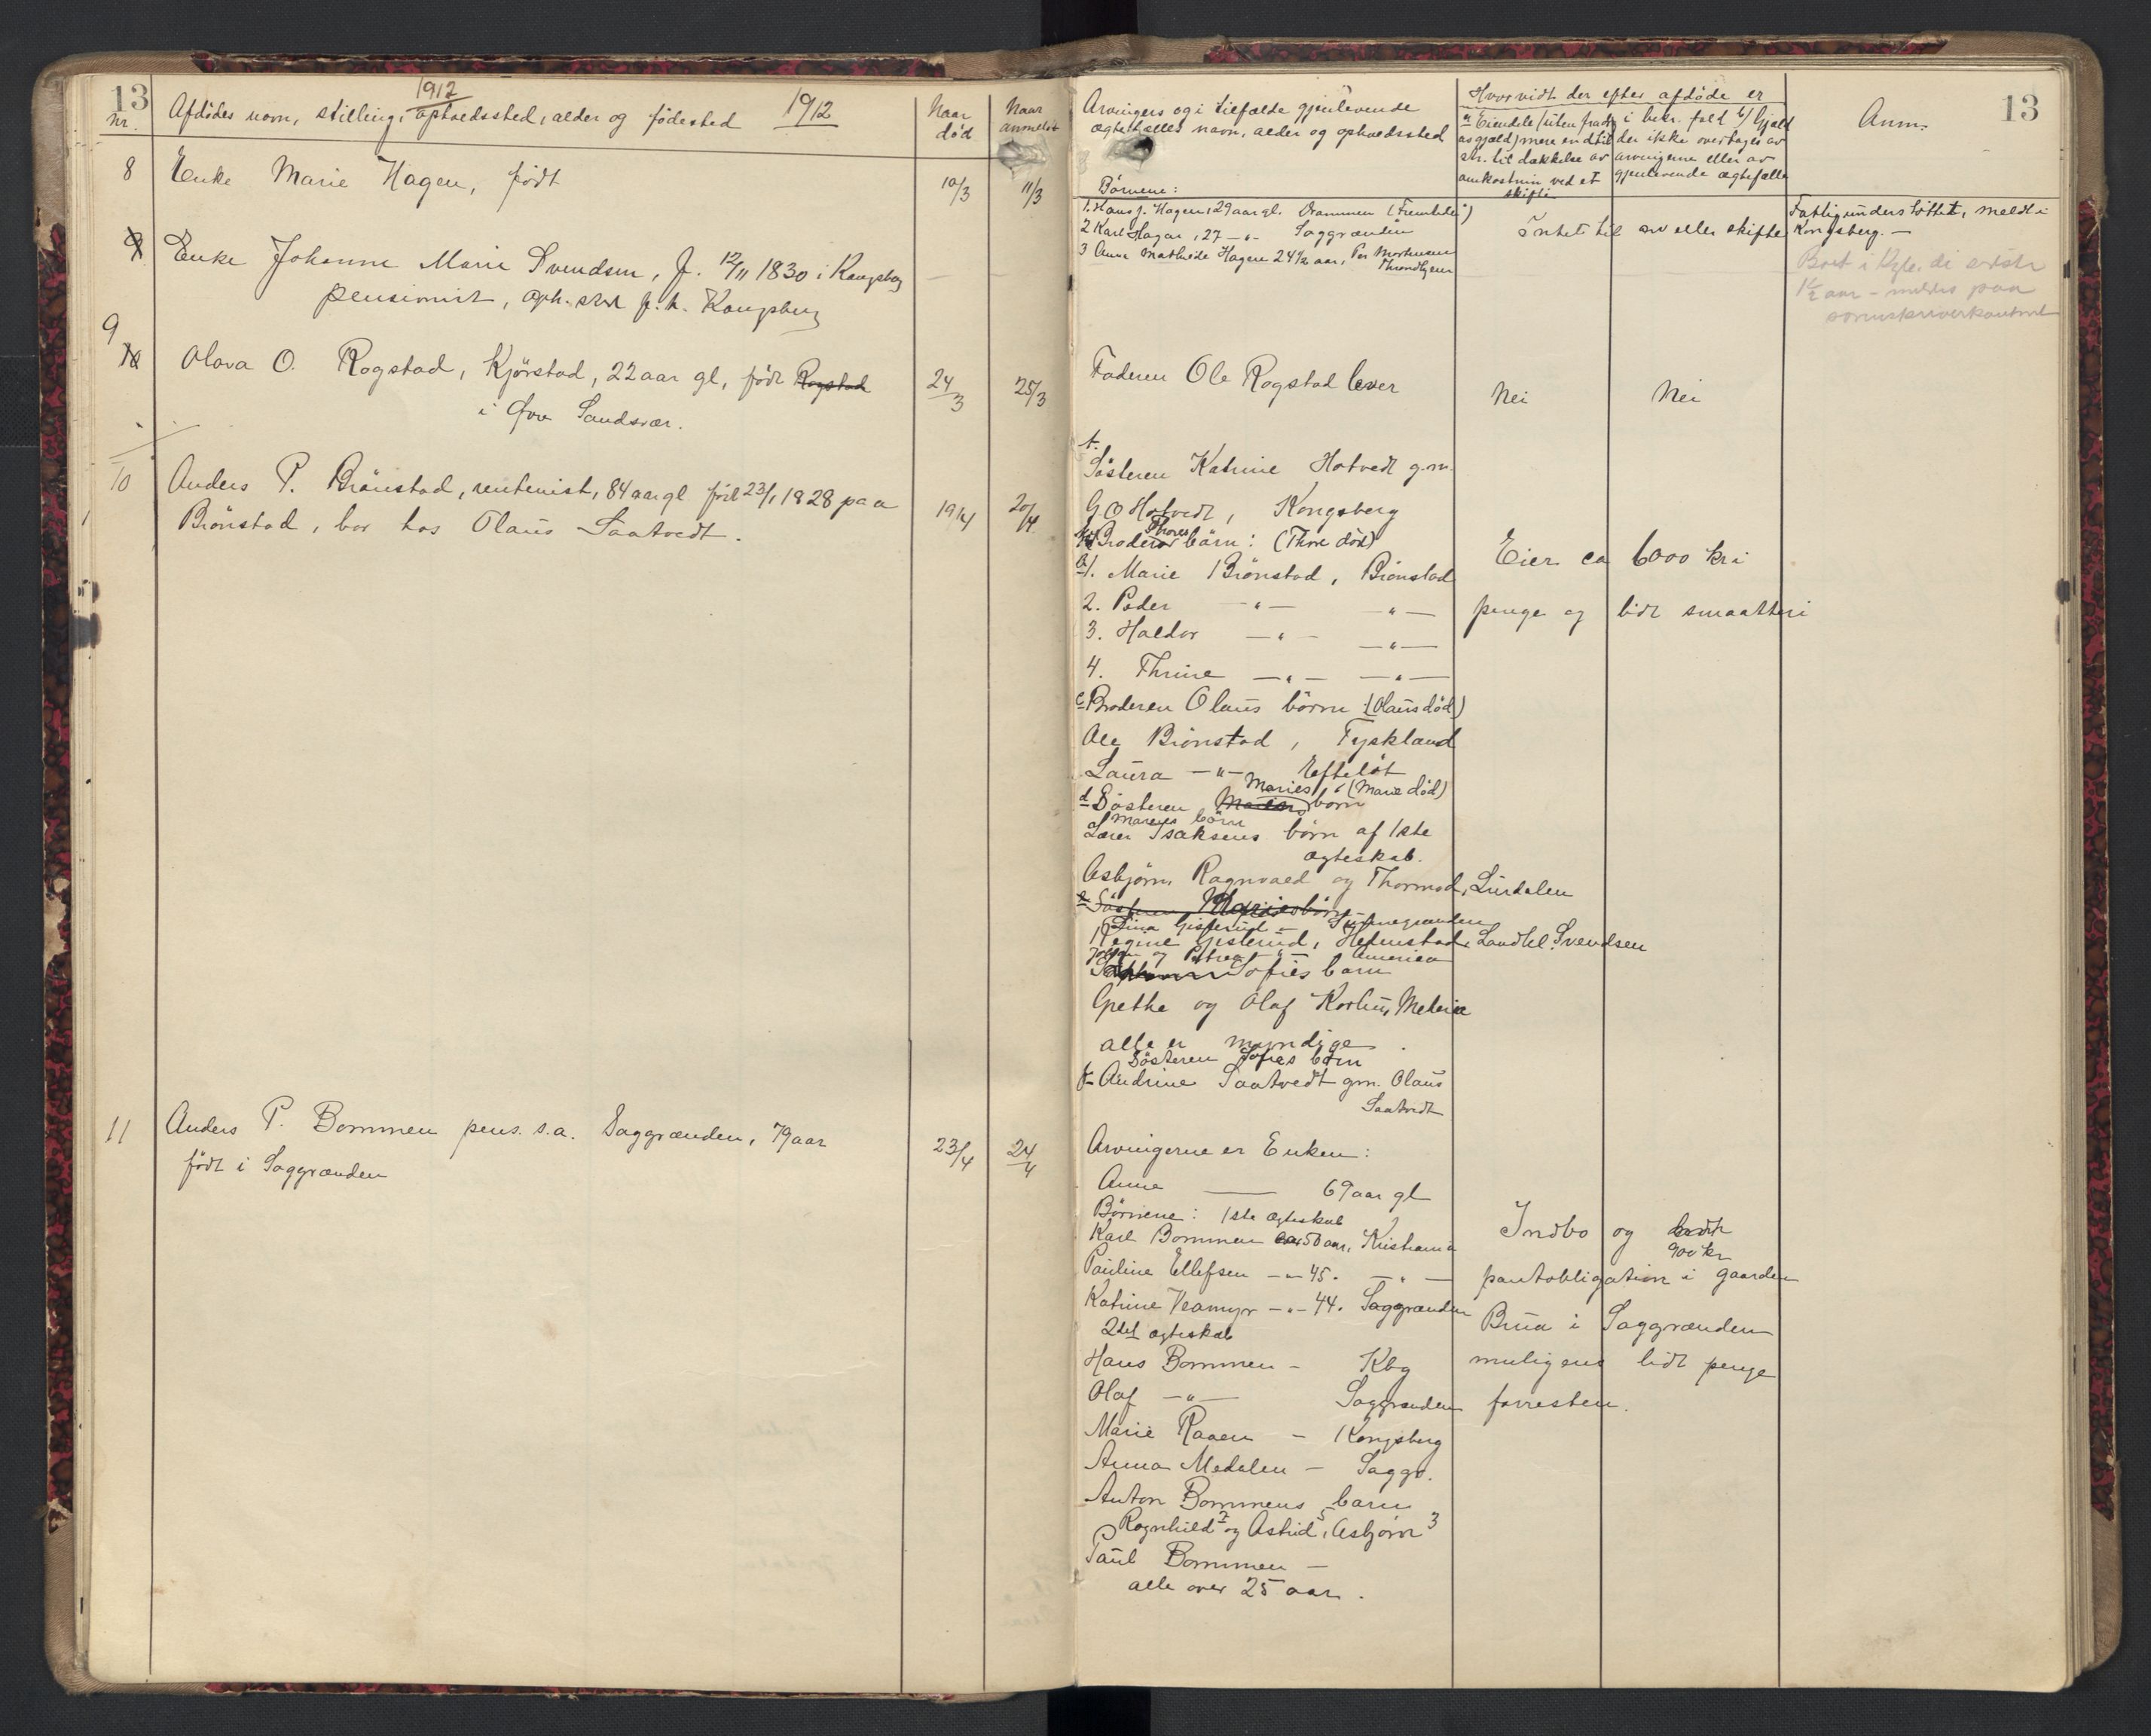 13
1912
nr. Afdödes navn, stilling, opholdssted, alder og födested 1912
Naar död
Naar anmeldt
8 Enke Marie Hagen, född
10/3 11/3
9 Enke Johanne Marie Svendsen, f. 12/11 1830 i Kongsberg
pensionist, oph. sted f. t. Kongsberg
9
10 Olava O. Rogstad, Kjörstad, 22 aar gl, född Rogstad
i Øvre Sandsvær.
24/3 25/3
10 Anders P. Brönstad, rentenist, 84 aar gl född 23/1 1828 paa
Brönstad, bor hos Olaus Saatvedt.
19/4 20/4
11 Anders P. Bommen pens. s.a. Saggrænden, 79 aar
född i Saggrænden
23/4 24/4
13
Arvingers og i tilfælde gjenlevende
ægtefælles navn, alder og opholdssted
Hvorvidt der efter afdöde er
a/ Eiendele (uten fradr. i bekr. fald b/ Gjæld
av gjæld) mere end til der ikke overtages av
str. til dækkelse av arvingerne eller av
omkostnin ved et gjenlevende ægtefælle
skifte
Anm.
Börnene:
1. Hans J. Hagen, 29 aar gl. Drammen (Fremtiden)
2 Karl Hagen, 27 -"- Saggrænden
3 Anna Mathilde Hagen 24 1/2 aar, Per Mortensen
Throndhjem
Intet til arv eller skifte
Fattigunderstöttet, meldt i
Kongsberg. —
Boet i Kgbg. de sidste
1/2 aar - meldes paa
sorenskriverkontoret
Faderen Ole Rogstad lever
Nei Nei
Sösteren Katrine Hotvedt g.m.
G O Hotvedt, Kongsberg
Broderen Thores börn: (Thore död)
b/ 1. Marie Brönstad, Brönstad
2. Peder -"- -"-
3. Haldor -"- -"-
4. Thrine -"- -"-
Eier ca 6000 kr i
penge og lidt smaatteri
c Broderen Olaus börn (Olaus död)
Ole Brönstad, Tyskland
Laura -"- Efteløt
d Sösteren Maries börn (Marie död)
Marens börn
Lærer Isaksens börn af 1ste
ægteskab.
Asbjörn, Ragnvald og Thormod, Lurdalen
e Sösteren Maries börn
Lina Gisterud -
Regine Gisterud, Helmstad, Landhl. Svendsen
og Petrea -"- Amerika
Sofies barn
Grethe og Olaf
alle er myndige.
Sösteren Sofies börn
f Andrine Saatvedt gm. Olaus
Saatvedt
Arvingerne er Enken:
Anne —— 69 aar gl
Börnene: 1ste ægteskab
Karl Bommen 50 aar, Kristiania
Pauline Ellefsen -"- 45. -"-
Katrine Veamyr -"- 44. Saggrænden
2det ægteskab
Hans Bommen - Kbg
Olaf -"- Saggrænden
Marie Raaen - Kongsberg
Anna Medalen - Saggr.
Anton Bommens barn
Ragnhild 7 og Astrid 5, Asbjörn 3
Paul Bommen —
alle over 25 aar.
Indbo og
900 kr
pantobligation i gaarden
Brua i Saggrænden
muligens lidt penge
forresten.